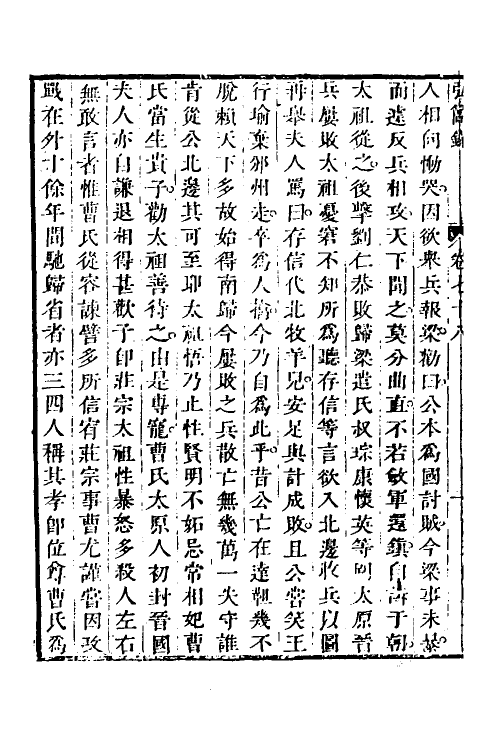 弘簡錄 卷七十八
人相向慟哭因欲舉兵報梁勸曰公本爲國討賊今梁事未暴
而遽反兵相攻天下聞之莫分曲直不若斂軍還鎮自訴于朝
太祖從之後擊劉仁恭敗歸梁遣氏叔琮康懷英等圍太原晉
兵屢敗太祖憂窘不知所爲聽存信等言欲入北邊收兵以圖
再舉夫人罵曰存信代北牧羊兒安足與計成敗且公嘗笑王
行瑜棄邠州走卒爲人擒今乃自爲此乎昔公亡在達靼幾不
脫賴天下多故始得南歸今屢敗之兵散亡無幾萬一失守誰
肯從公北邊其可至耶太祖悟乃止性賢明不妬忌常相妃曹
氏當生貴子勸太祖善待之由是專寵曹氏太原人初封晉國
夫人亦自謙退相得甚歡子卽莊宗太祖性暴怒多殺人左右
無敢言者惟曹氏從容諫譬多所信宥莊宗事曹尤謹嘗因攻
戰在外十餘年間馳歸省者亦三四人稱其孝卽位尊曹氏爲